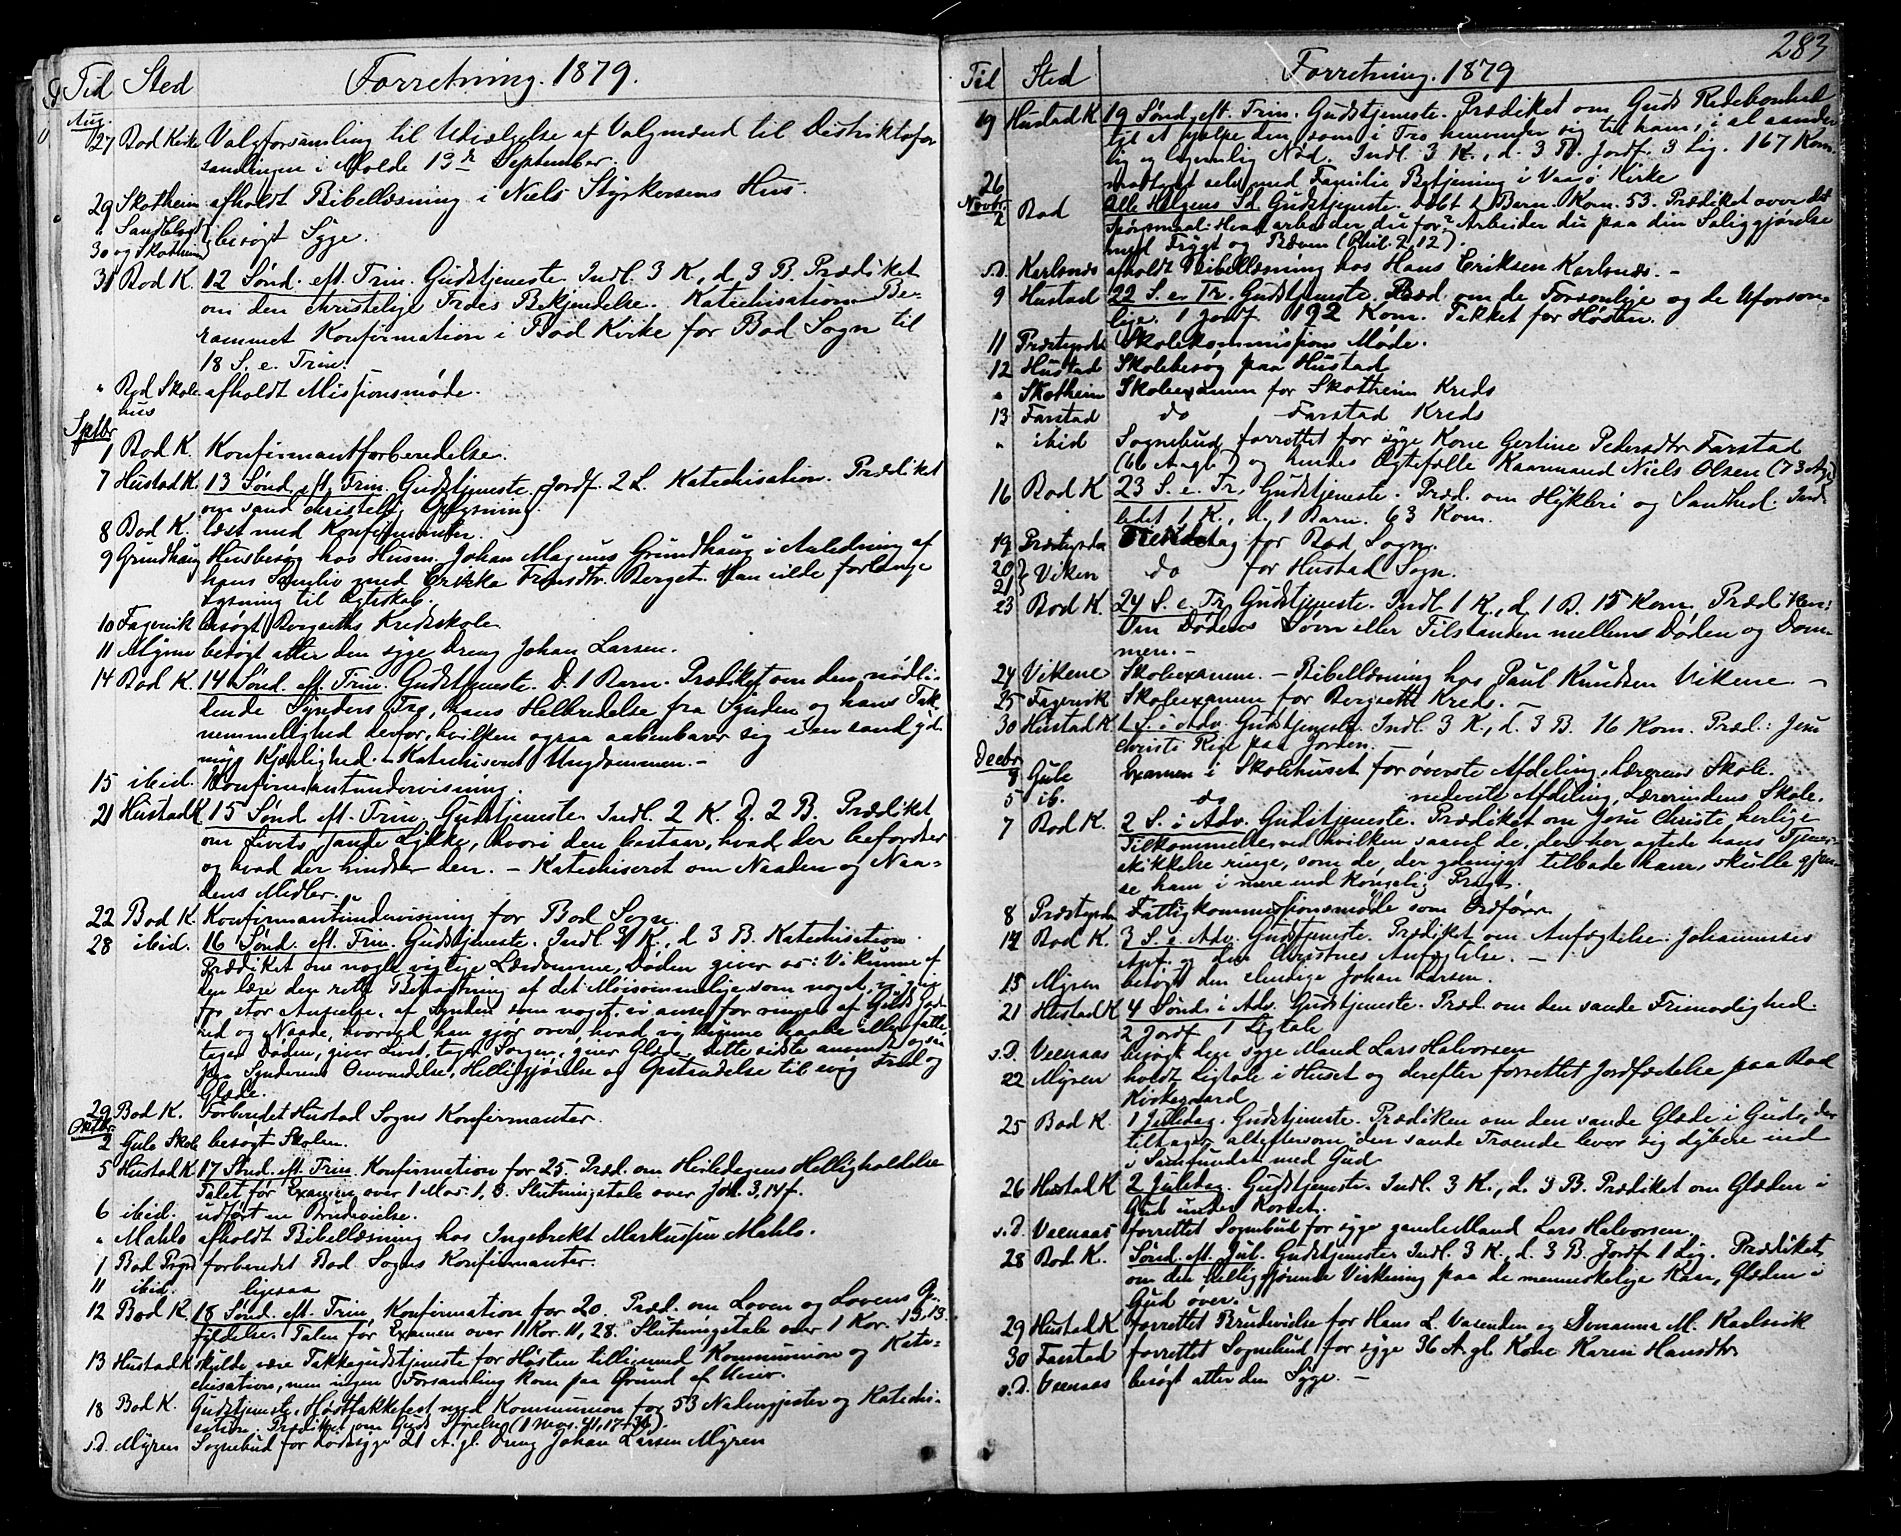 Tid Sted Forretning. 1879.
Aug.
27 Bod Kirke Valgforsamling til Udvælgelse af Valgmænd til Distriktsfor
samlingen i Molde 13de September.
29 Skotheim afholdt Bibellæsning i Niels Styrkorsens Hus.
" Sandblost
30 og Skotheim besøgt Syge.
31 Bod K. 12 Sønd. eft. Trin. Gudstjeneste. Indl. 3 K., d. 3 B. Prædiket
om den christelige Troes Bekjendelse. Katechisation. Be-
rammet Konfirmation i Bod Kirke for Bod Sogn til
18 S. e. Trin.
" Bod Skole afholdt Missionsmøde.
hus
Septbr
1 Bod K. Konfirmantforberedelse.
7 Hustad K. 13 Sønd. eft. Trin. Gudstjeneste. Jordf. 2 L. Katechisation. Prædiket
om sand christelig Oplysning.
8 Bod K. læst med Konfirmanter.
9 Grundhaug Husbesøg hos Husm. Johan Magnus Grundhaug i Anledning af
hans Samliv med Erikka Berget. Han vilde forlange
Lysning til Ægteskab.
10 Fagervik besøgt Bergseths Kredsskole.
11 Myren besøgt atter den syge Dreng Johan Larsen.
14 Bod K. 14 Sønd. eft. Trin. Gudstjeneste. D. 1 Barn. Prædiket om den nødli-
dende Synders Tro, hans Helbredelse fra Synden og hans Tak
nemmelighed derfor, hvilken ogsaa aabenbarer sig i en sand yd-
myg Kjærlighed. - Katechiseret Ungdommen. -
15 ibid. Konfirmantundervisning.
21 Hustad K 15 Sønd. eft. Trin. Gudstjeneste. Indl. 2 K. D. 2 B. Prædiket
om Livets sande Lykke, hvori den bestaar, hvad der befordrer
og hvad der hindrer den. - Katechiseret om Naaden og Naa-
dens Midler.
22 Bod K. Konfirmantundervisning for Bod Sogn.
28 ibid. 16 Sønd. eft. Trin. Gudstjeneste. Indl. 3 K., d 3 B. Katechisation.
Prædiket om nogle vigtige Lærdomme, Døden giver os: Vi kunne af
den lære den rette Betragtning af det som noget, vi
for stor af Synden som noget, vi anse for ringe, af Guds
hed og Naade, hvorved han gjør over, hvad vi kunne haabe eller fatte,
tager Døden, giver Livet, tager Sorgen, giver Glæde. Dette sidste anvendt ogsaa
paa Synderens Omvendelse, Helliggjørelse og Opstandelse til evig Fred og
Glæde.
29 Bod K. Forberedet Hustad Sogns Konfirmanter.
Oktbr.
2 Gule Skole besøgt Skolen.
5 Hustad K 17 Sønd. eft. Trin. Konfirmation for 25. Præd. om Hviledagens Helligholdelse
Talet før Examen over 1 Mos. 1, 3. Slutningstale over Joh. 3,14f.
6 ibid. udført en Brudevielse.
" Mahle afholdt Bibellæsning hos Ingebrekt Markussen Mahle.
Bod forberedet Bod Sogns Konfirmanter.
11 ibid. ligesaa
12 Bod K. 18 Sønd. eft. Trin. Konfirmation for 20. Præd. om Loven og Lovens Op-
fyldelse. Talen før Examen over 1 Kor. 11, 28. Slutningstale over 1 Kor. 13.13.
13 Hustad K skulde være Takkegudstjeneste for Høsten tilligemed Kommunion og Kate-
chisation, men ingen Forsamling kom paa Grund af Uveir.
18 Bod K. Gudstjeneste, Høsttakkefest med Kommunion for 53 Nadvergjester og Katechi-
sation. Prædiket om Guds Styrelse (1 Mos. 41,17-36).
s.D. Myren Sognebud for dødssyge 21 A. gl. Dreng Johan Larsen Myren
283
Tid Sted Forretning. 1879
19 Hustad K 19 Sønd. eft. Trin. Gudstjeneste. Prædiket om Guds Redebonhed
til at hjælpe den, som i Tro henvender sig til ham, i al aande-
lig og legemlig Nød. Indl. 3 K., d. 3 B. Jordf. 3 Lig. 167 Kom.
26 modtaget selv med Familie Betjening i Vaaø Kirke
Novbr.
2 Bod Alle Helgens Sd. Gudstjeneste. Døbt 1 Barn. Kom. 53. Prædiket over det
Spørgsmaal: Hvad arbeider du for? Arbeider du paa din Saliggjørelse
med Frygt og Bæven (Phil. 2,12).
s.D. Karlsnæs afholdt Bibellæsning hos Hans Eriksen Karlsnæs. -
9 Hustad 22 S. e. Tr. Gudstjeneste. Præd. om de Forsonlige og de Uforson-
lige. 1 Jordf. 192 Kom. Takket for Høsten.
11 Præstgrdn Skolekommissions Møde.
12 Hustad Skolebesøg paa Hustad
" Skotheim Skoleexamen for Skotheim Kreds
13 Farstad do Farstad Kreds
" ibid Sognebud forrettet for syge Kone Gertine Pedersdtr Farstad
(66 A. gl.) og hendes Ægtefælle Kaarmand Niels Olsen (73 A. gl.)
16 Bod K 23 S. e. Tr. Gudstjeneste. Præd. om Hykleri og Sandhed. Ind-
ledet 1 K., d. 1 Barn. 63 Kom.
19 Præstgrdn for Bod Sogn.
20 } Viken do for Hustad Sogn.
21
23 Bod K. 24 S. e. Tr. Gudstjeneste. Indl. 1 K., d. 1 B. 15 Kom. Prædiken:
Om Dødens Søvn eller Tilstanden mellem Døden og Dom-
men. -
24 Vikene Skoleexamen. - Bibellæsning hos Paul Knudsen Vikene. -
25 Fagervik Skoleexamen for Bergseth Kreds. -
30 Hustad K 1 S. i Adv. Gudstjeneste. Indl. 3 K., d. 3 B. 16 Kom. Præd.: Jesu
Christi Rige paa Jorden. -
Decbr
Gule Examen i Skolehuset for øverste Afdeling, Lærerens Skole.
5 ib. do nederste Afdeling, Lærerindens Skole.
7 Bod K. 2 S. i Adv. Gudstjeneste. Prædiket om Jesu Christi herlige
Tilkommelse, ved hvilken saavel de, der her agtede hans Tjener-
skikkelse ringe, som de, der ydmygt tilbade ham, skulle gjen-
se ham i mere end kongelig Pragt.
8 Præstgrdn Fattigkommissionsmøde som Ordfører
14 Bod K. 3 S. i Adv. Gudstjeneste. Prædiket om Anfægtelse: Johannes's
Anf. og den Christnes Anfægtelse. -
15 Myren besøgt den elendige Johan Larsen.
21 Hustad K 4 Sønd. i Adv. Gudstjeneste. Præd. om den sande Frimodighed.
2 Jordf. 1 Ligtale
s.D. Veenaas besøgt den syge Mand Lars Halvorsen
22 Myren holdt Ligtale i Huset og derefter forrettet Jordfæstelse paa Bod
Kirkegaard
25 Bod K. 1 Juledag. Gudstjeneste. Prædiken om den sande Glæde i Gud, der
tiltager, alteftersom den sande Troende lever sig dybere ind
i Samfundet med Gud
26 Hustad K 2 Juledag. Gudstjeneste. Indl. 3 K., d. 3 B. Prædiket om Glæden i
Gud under Korset.
s.D. Veenaas forrettet Sognebud for syge gamle Mand Lars Halvorsen.
28 Bod K. Sønd. eft. Jul. Gudstjeneste Indl. 3 K., d. 3 B. Jordf. 1 Lig. Prædiket
om den helliggjørende Virkning paa de menneskelige Kaar, Glæden i
Gud over.
29 Hustad K forrettet Brudevielse for Hans L. Varenden og M. Karlsvik
30 Farstad forrettet Sognebud for syge 36 A. gl. Kone Karen Hansdtr
s.D. Veenaas besøgt atter den Syge. -